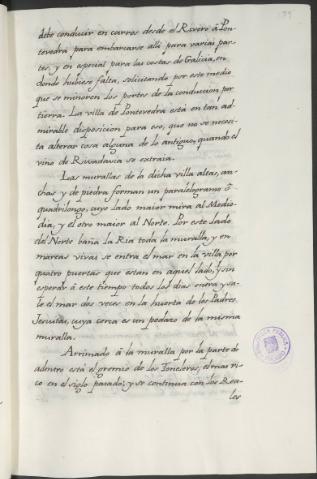 debe conducir en carros desde el Rivero â Pon-
tevedra para embarcarse allà para varias par-
tes, y en especial para las costas de Galicia, en
donde hubiese falta, solicitando por este medio
que se minoren los portes de la conduccion por
tierra. La villa dê Pontevedra està en tan ad-
mirable disposicion para eso, que no se necesi-
ta alterar cosa alguna de lo antiguo, quando el
vino de Rivadavia se extraìa.
Las murallas de la dicha villa altas, an-
chas y de piedra forman un paralelogramo ô
quadrilongo, cuyo lado maior mira al Medio-
dia, y el otro maior al Norte. Por este lado
del Norte baña la Ria toda la muralla, y en
mareas vivas se entra el mar en la villa por
quatro puertas que estan en aquel lado, y sin
esperar â este tiempo todos los dias entra y sa-
le el mar dos veces en la huerta de los Padres
Jesuitas, cuya cerca es un pedazo de la misma
muralla.
Arrimado â la muralla por la parte de
adentro està el gremio de los Toneleros,
co en el siglo pasado; y se continua con los Rea-
les